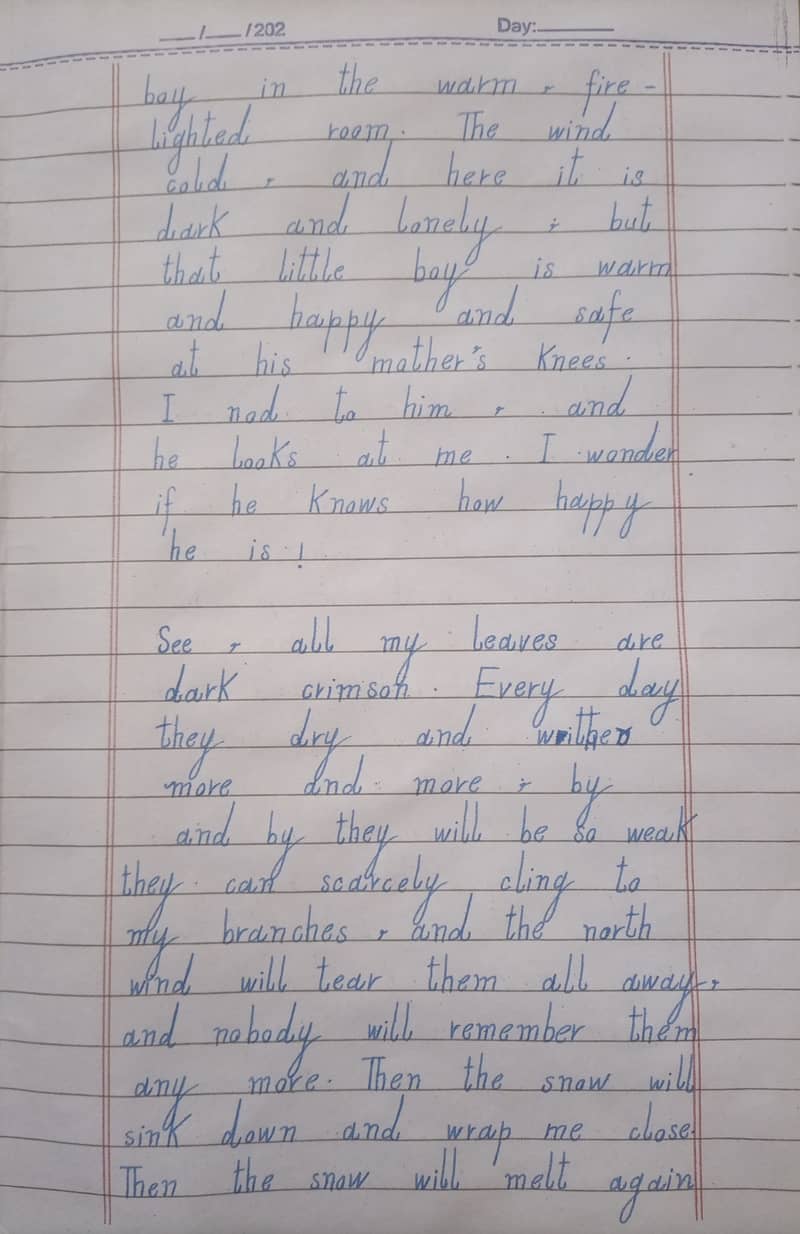 __/__/202 Day:______
boy in the warm, fire-
lighted room. The wind
cold, and here it is
dark and lonely; but
that little boy is warm
and happy and safe
at his mother's Knees.
I nod to him, and
he looks at me. I wonder
if he Knows how happy
he is!
See, all my leaves are
dark crimson. Every day
they dry and
more and more; by
and by they will be so weak
they can scarcely cling to
my branches, and the north
wind will tear them all away,
and nobody will remember them
any more. Then the snow will
sink down and wrap me close.
Then the snow will melt again